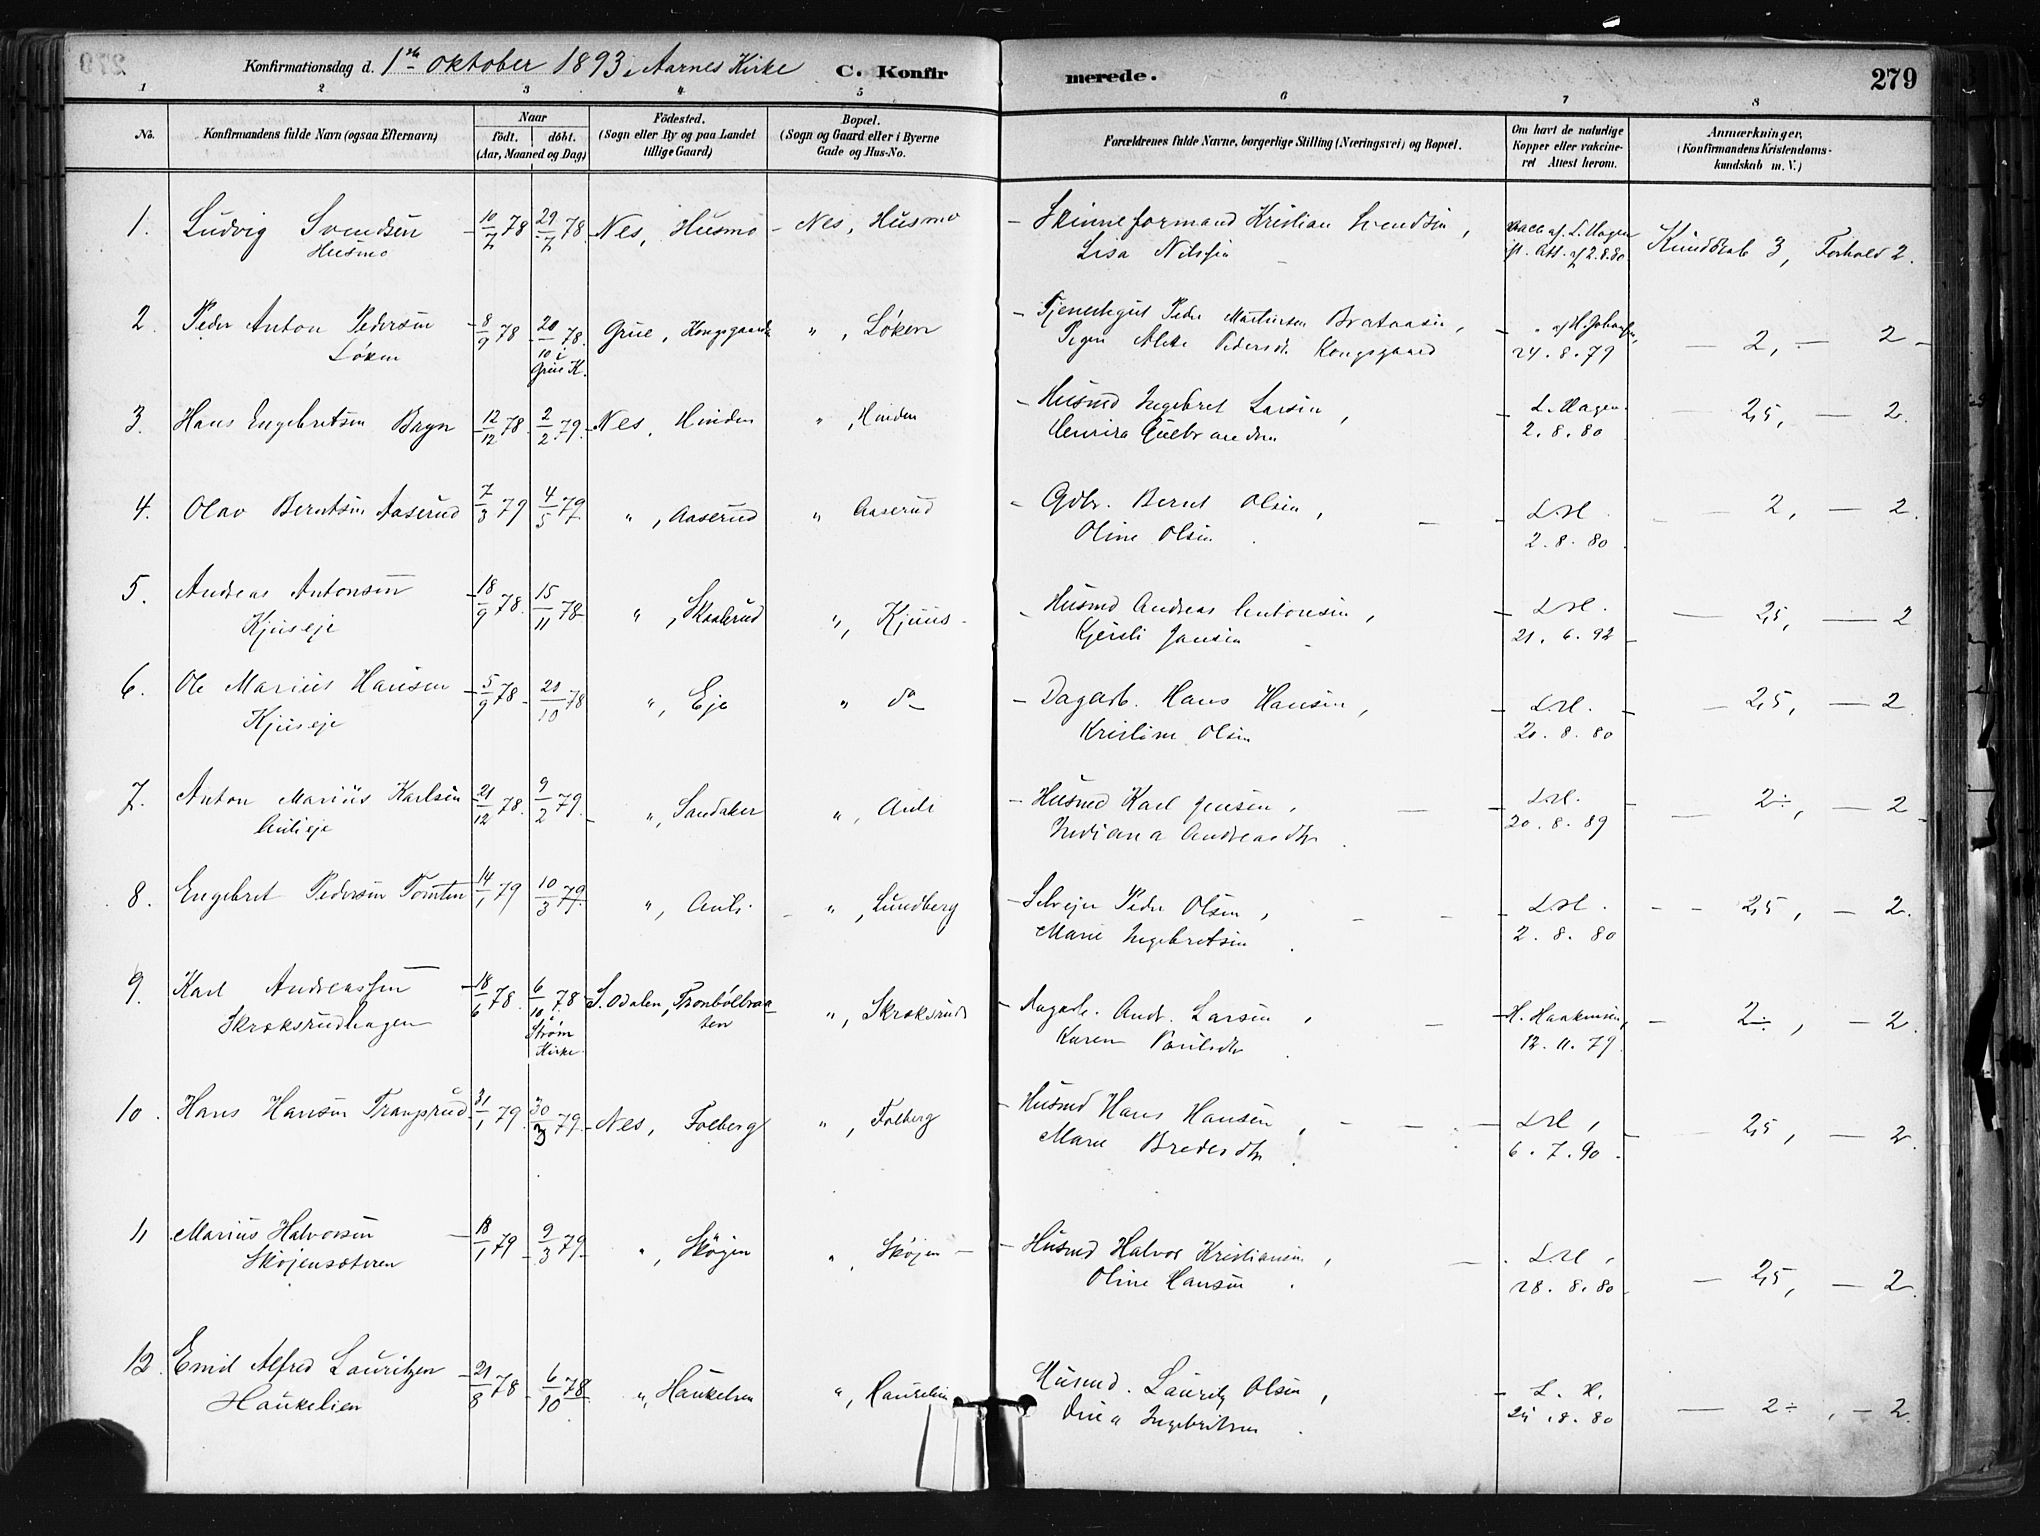 Konfirmationsdag d. 1ste Oktober 1893 i Aarnes Kirke C. Konfirmerede. 279
1 2 3 4 5 6 7 8
No. Konfirmandens fulde Navn (ogsaa Efternavn) Naar født. døbt. (Aar, Maaned og Dag) Fødested. (Sogn eller By og paa Landet tillige Gaard) Bopæl. (Sogn og Gaard eller i Byerne Gade og Hus-No. Forældrenes fulde Navne, borgerlige Stilling (Næringsvei) og Bopæl. Om havt de naturlige Kopper eller vakcineret Attest herom. Anmærkninger, (Konfirmandens Kristendomskundskab m. V.)
1. Ludvig Svendsen 10/7 78 29/7 78 Nes, Husmo Nes, Husmo Skinneformand Kristian Svendsen, Vacc af L. Hagen
Husmo Lisa Nilssen if. Att. af 2.8.80 Kundskab 3, Forhold 2.
2. Peder Anton Pedersen 8/9 78 20/10 78 i Grue K. Grue, Kongsgaard " , Løken Tjenestegut Peder Martinsen Brataasen, " af H. Johansen,
Løken Pigen Alette Pedersdt. Kongsgaard 24.8.79 — 2, — 2
3. Hans Engebretsen Bryn 12/12 78 2/2 79 Nes, Hinden " , Hinden Husmd Ingebret Larsen, L. Hagen
Gulbrandsen 2.8.80 2,5, — 2.
4. Olav Berntsen Aaserud 7/3 79 4/5 79 " , Aaserud " Aaserud Gdbr. Bernt Olsen, L.H.
Oline Olsen 2.8.80 — 2, — 2.
5. Andreas Antonsen 18/9 78 15/11 78 " , Skaalerud " , Kjuus Husmd Andreas Antonsen, L.H.
Kjuseje Kjersti Jansen 21.6.92 — 2,5, — 2
6. Ole Marius Hansen 5/9 78 20/10 78 " , Eje " do Dagarb. Hans Hansen, L.H.
Kjuseje Kristine Olsen 20.8.80 — 2,5, — 2
7. Anton Marius Karlsen 21/12 78 9/2 79 " , Sandaker " , Auli Husmd Karl Jensen, L.H.
Aulieje Indiana Andreasdtr. 20.8.89 — 2÷, — 2
8. Engebret Pedersen Tomten 14/1 79 10/3 79 " , Auli " , Lundberg Selvejer Peder Olsen, L.H.
Marie Ingebretsen 2.8.80 — 2,5, — 2.
9. Karl Andreassen 18/6 78 6/10 78 i Strøm Kirke S. Odalen, Tronbølbraaten " , Skroksrud Dagarb. Andr. Larsen, H. Haakensen,
Skroksrudhagen Karen Paulsdtr 12.11.79 — 2÷, — 2.
10. Hans Hansen Trangsrud 31/1 79 30/3 79 Nes, Folberg " , Folberg Husmd Hans Hansen, L.H.
Marie Bredesdtr. 6.7.90 2,5, — 2
11 Marius Halvorsen 18/1 79 9/3 79 " , Skøjen " , Skøjen Husmd Halvor Kristiansen, L.H.
Skøjensæteren Oline Hansen 28.8.80 — 2,5, — 2.
12. Emil Alfred Lauritzen 21/8 78 6/10 78 " , Haukelien " , Haukelien Husmd. Lauritz Olsen, L. H.
Haukelien Ingebritsen 24.8.80 — 2÷, — 2.